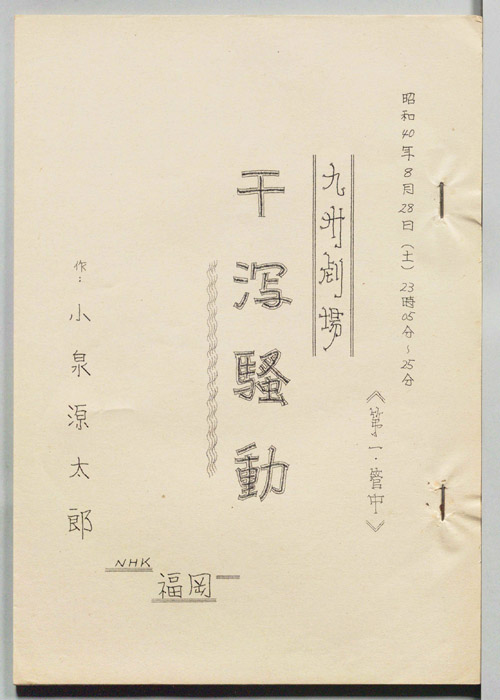 昭和40年8月28日（土）23時05分～25分
《第一・管中》
九州劇場
干潟騒動
作：小泉源太郎
NHK
福岡